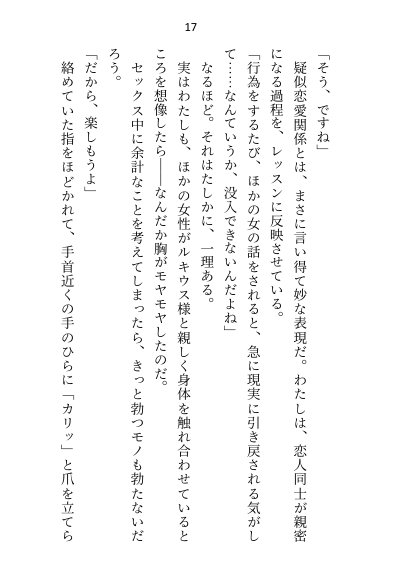 17
「そう、ですね」
疑似恋愛関係とは、まさに言い得て妙な表現だ。わたしは、恋人同士が親密
になる過程を、レッスンに反映させている。
「行為をするたび、ほかの女の話をされると、急に現実に引き戻される気がし
て……なんていうか、没入できないんだよね」
なるほど。それはたしかに、一理ある。
実はわたしも、ほかの女性がルキウス様と親しく身体を触れ合わせていると
ころを想像したら――なんだか胸がモヤモヤしたのだ。
セックス中に余計なことを考えてしまったら、きっと勃つモノも勃たないだ
ろう。
「だから、楽しもうよ」
絡めていた指をほどかれて、手首近くの手のひらに「カリッ」と爪を立てら